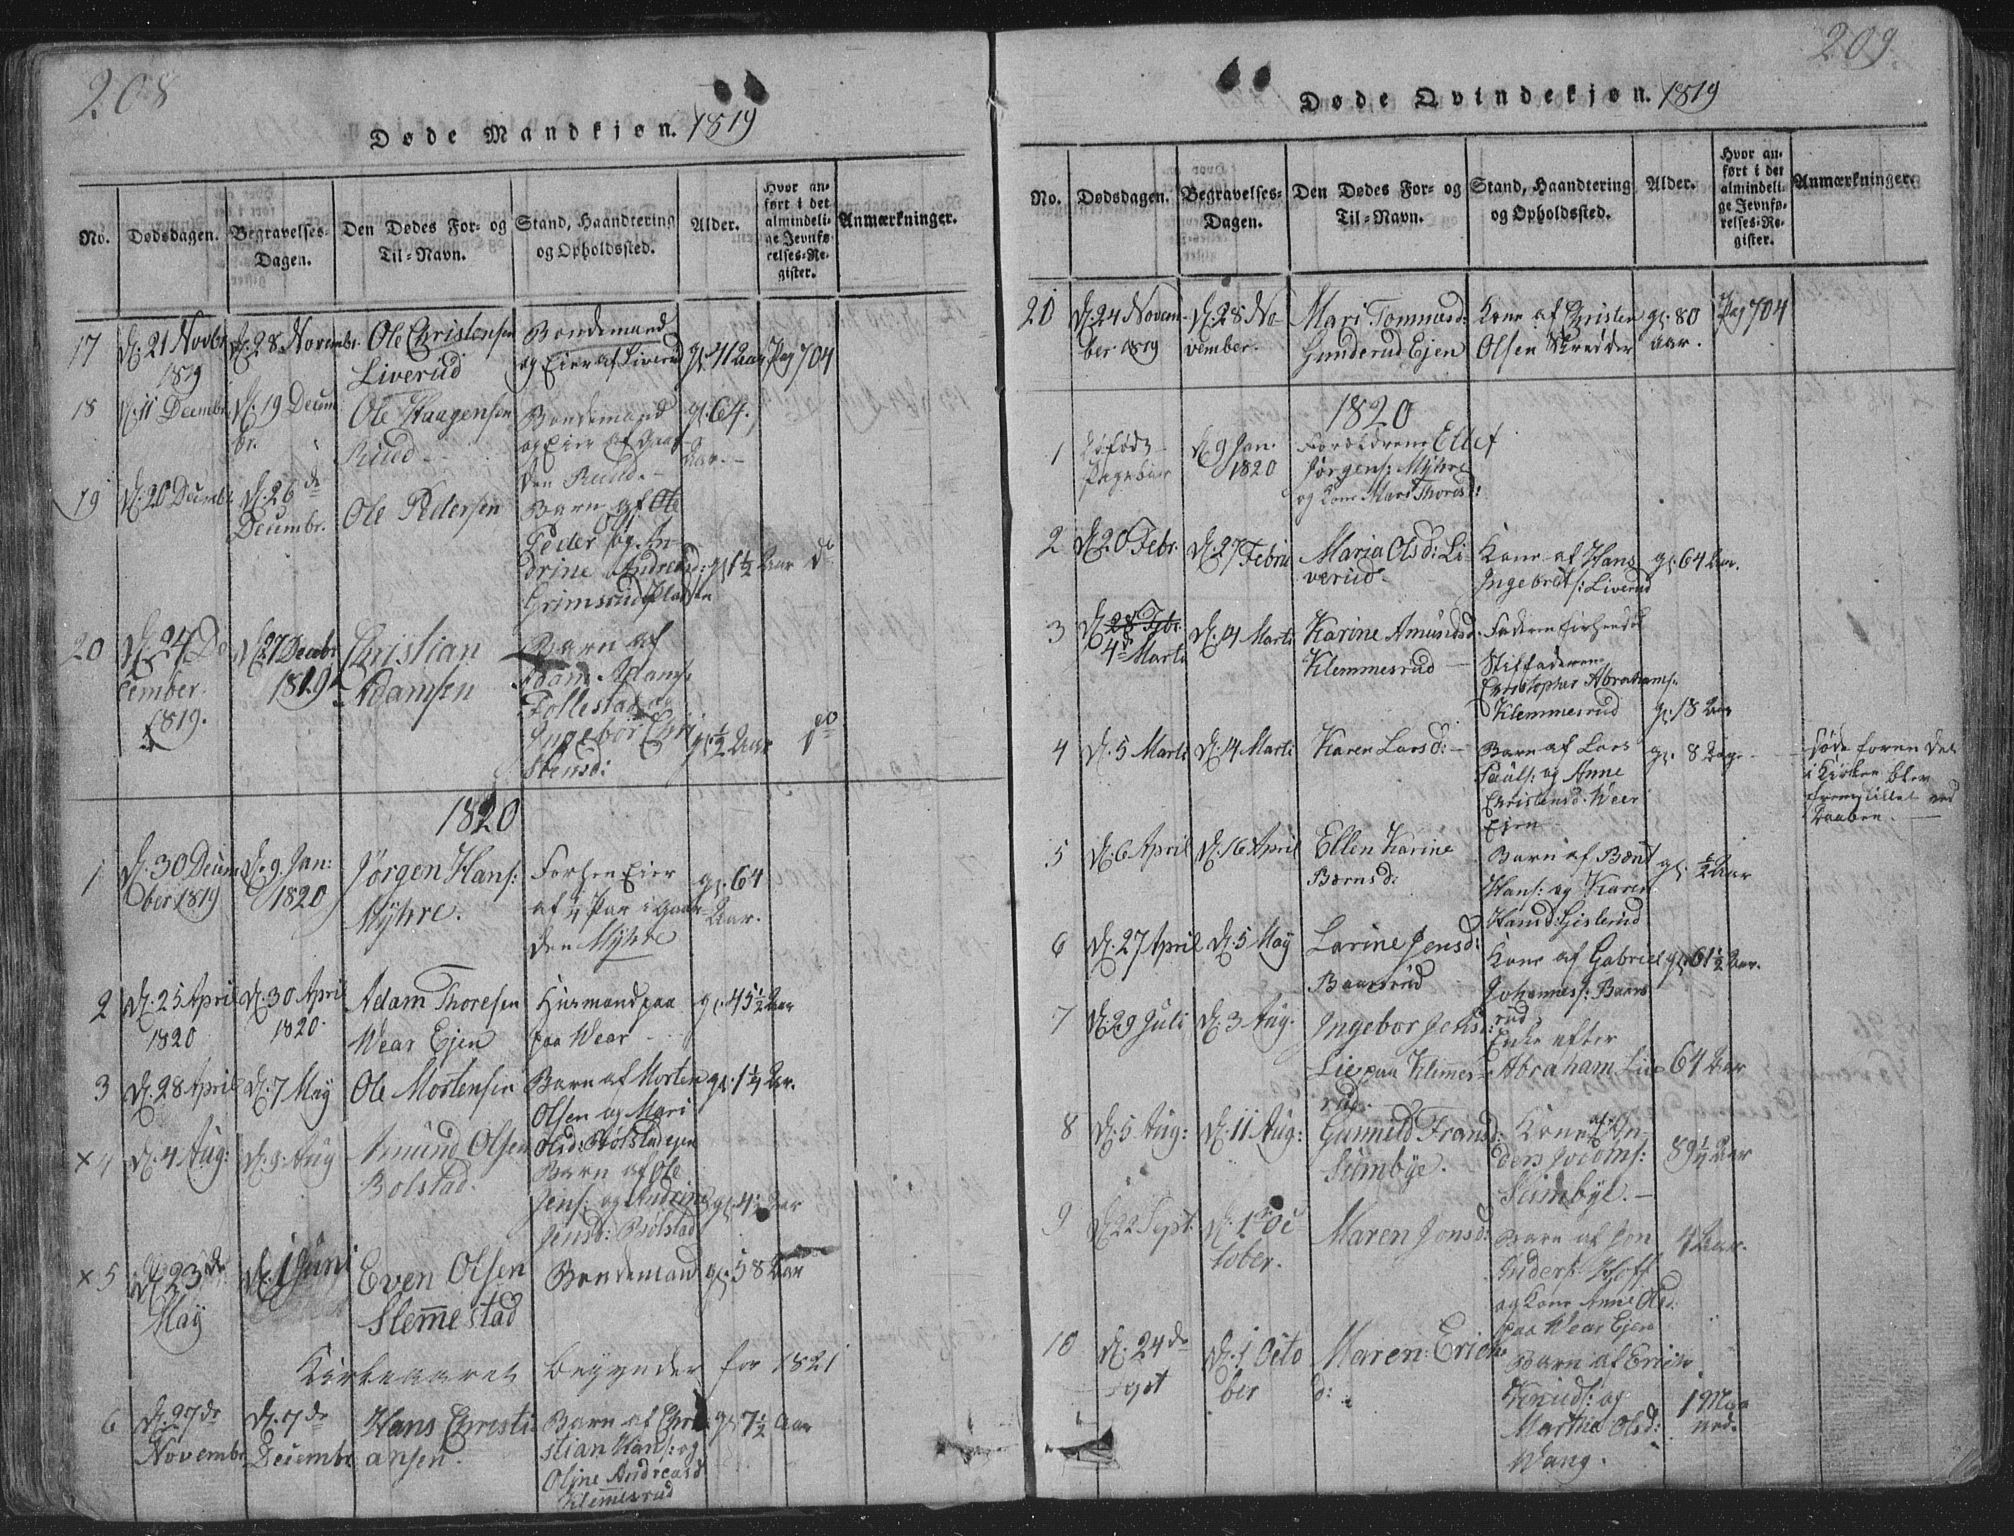 208
Døde Mandkjøn. 1819
No.
Dødsdagen.
Begravelses-
Dagen.
Den Dødes For- og
Til-Navn.
Stand, Haandtering
og Opholdssted.
Alder.
Hvor an-
ført i det
almindeli-
ge Jevnfø-
relses-Re-
gister.
Anmærkninger.
17
D. 21 Novbr
1819
D. 28 Novembr.
Ole Christensen
Liverud
Bondemand
og Eier af Liverud
gl. 41 Aar
Pag 704
18
D. 11 Decembr.
D. 19 Decem
br.
Ole Haagensen
Ruud
Bondemand
og Eier af Gaar
den Ruud.
gl. 64.
Aar.
19
D. 20 Decembr
D. 26 de
Decembr.
Ole Pedersen
Barn af Ole
Peder og An
drine Andreasd:
Grimsrud Pladsen
gl. 1½ Aar
do
20
D. 24 De
cember.
1819.
D. 27 Decebr
1819
Christian
Adamsen
Barn af
Adam Adams:
Follestad og
Ingebor Chri
stensd:
gl. ½ Aar
do
1820
1
D. 30 Decem
ber 1819
D. 9. Jan:
1820
Jørgen Hans:
Myhre.
Forhen Eier
af ¼ Par i Gaar
den Myhre
gl. 64
Aar.
2
D. 25 April
1820
D. 30 April
1820.
Adam Thoresen
Wear Ejen
Husmand paa
paa Wear
gl. 45½ Aar
3
D. 28 April
D. 7 May
Ole Mortensen
Barn af Morten
Olsen og Mari
Olsd: Bølstadejen
gl. 1¼ Ar.
x 4
D. 4 Aug:
D. 9. Aug
Amund Olsen
Bolstad.
Barn af Ole
Jens: og Andrine
Jensd: Bølstad
gl. 4½ Aar
x 5
D. 23 de
May
D. 1 Juni
Even Olsen
Slemmestad
Bondemand
gl. 58 Aar
Kirkeaaret begynder for 1821
6
D. 27 de
Novembr
D. 7 de
Decembr
Hans Christi
ansen.
Barn af Chri
stian Hans: og
Oline Andreasd
Klemmesrud
gl. 7½ Aar
209.
Døde Qvindekjøn. 1819
No.
Dødsdagen.
Begravelses-
Dagen.
Den Dødes For- og
Til-Navn.
Stand, Haandtering
og Opholdssted.
Alder.
Hvor an-
ført i det
almindeli-
ge Jevnfø-
relses-Re-
gister.
Anmærkninger.
20
D. 24 Novem-
ber 1819
D. 28 No-
vember.
Mari Tommesd:
Gunderud Ejen
Kone af Christen
Olsen Skredder
gl. 80
Aar.
Pag 704
1820
1
D. 9 Jan.
1820
Forældrene Ellef
Jørgens: Myhre
og Kone Mari Thoresd:
2
D. 20 Febr.
D. 27 Febru
Maria Olsd: Li
verud.
Kone af Hans
Ingebrets: Liverud
gl. 64 Aar.
3
D. 28 Febr.
4 Marts
D. 14 Marti
Karine Amundsd.
Klemmesrud
Stiffaderen
Christopher Abrahams:
Klemmesrud
gl. 18 Aar
4
D. 5 Marti
D. 14 Marti
Karen Larsd:
Barn af Lars
Pauls: og Anne
Christensd. Wear
Ejen
gl. 8 Dage
døde foren det
i Kirken blev
fremstillet ved
Daaben.
5
D. 6 April
D. 16 April
Ellen Karine
Bærnsd:
Barn af Bærnt
Hans: og Karen
Hansd: Gislerud
gl. ½ Aar
6
D. 27 April
D. 5 May
Larine Jensd:
Baarsrud
Kone af Gabriel
Johannes: Baars
rud
gl. 61½ Aar.
7
D. 29 Juli
D. 3 Aug.
Ingebor Jensd:
Lie paa Klemes-
rud.
Enke efter
Abraham Lie
64 Aar
8
D. 5 Aug:
D. 11 Aug:
Gunnild Fransd:
Sumbye.
Kone af An
ders Joems:
Sumbye.
89¼ Aar
9
D. 22 Sept.
D. 1 Oc
tober.
Maren Jonsd:
Barn af Jon
Anders: Hoff
og Kone Anne Olsd:
paa Wear Ejen
4 Aar.
10
D. 24 de
Sept
D. 1 Octo
ber
Maren Erich
d:
Barn af Erich
Knuds: og
Martha Olsd:
Wang.
1 Maa
ned.